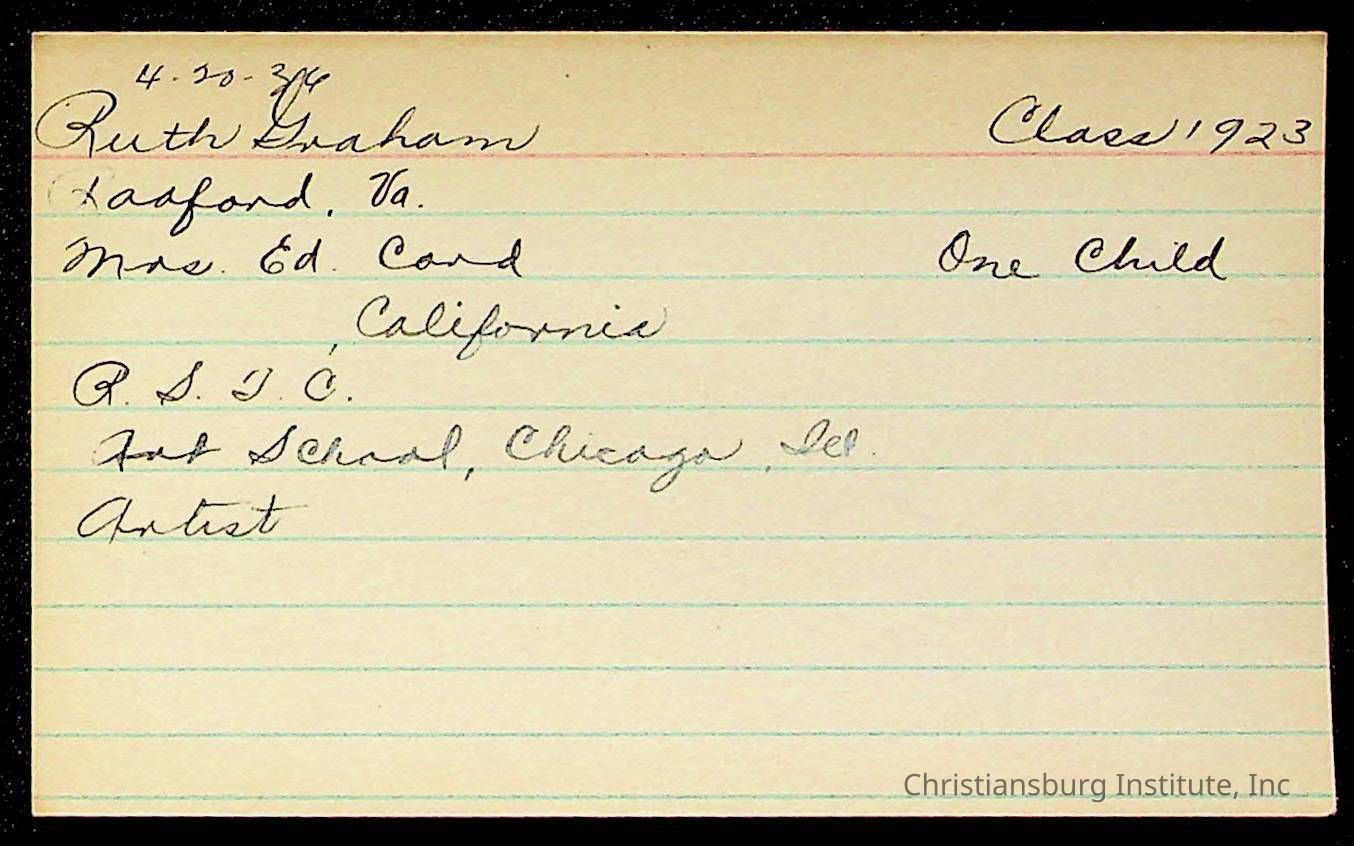 4-20-36
Ruth Graham Class 1923
Radford, Va.
Mrs. Ed. Card One Child
, California
R. S. T. C.
Art School, Chicago, Ill.
Artist
Christiansburg Institute, Inc